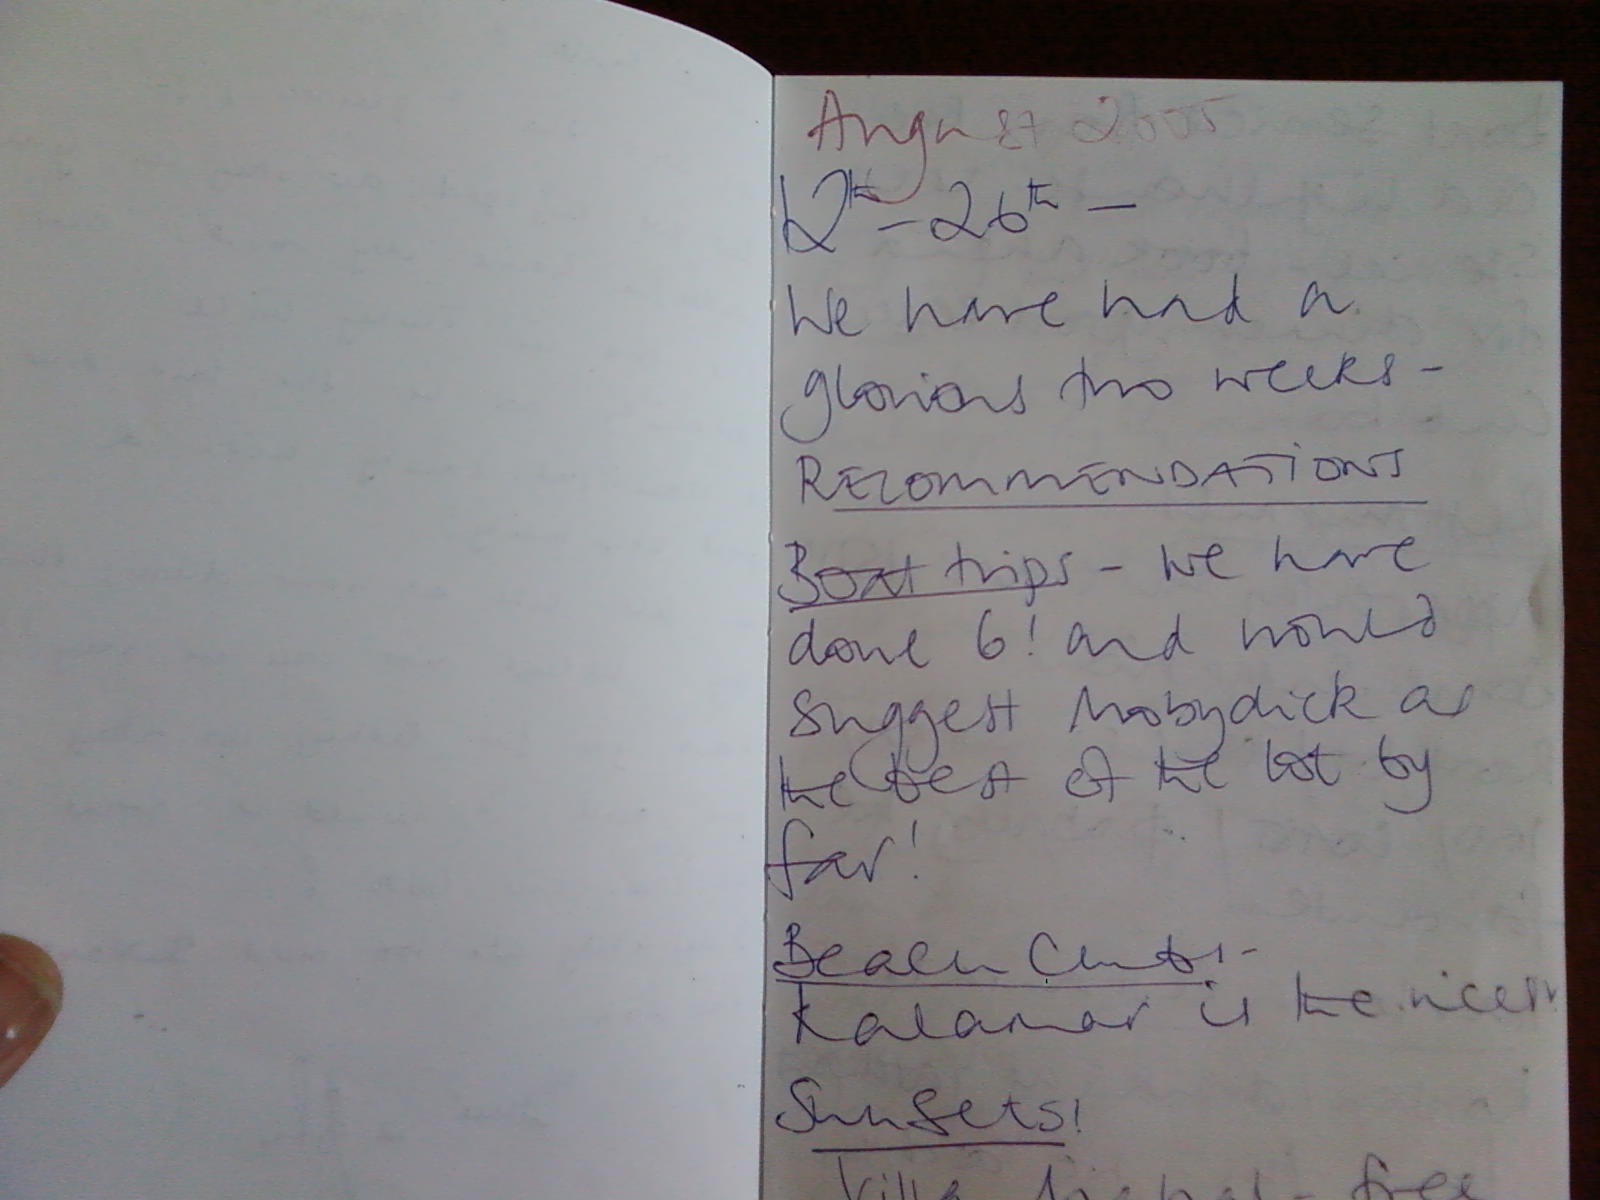 August 2005
12th - 26th -
We have had a
glorious two weeks -
RECOMMENDATIONS
Boat trips - we have
done 6! and would
suggest Mobydick as
the best of the lot by
far!
Beach Clubs -
Kalamar is the nicest
Sunsets!
free